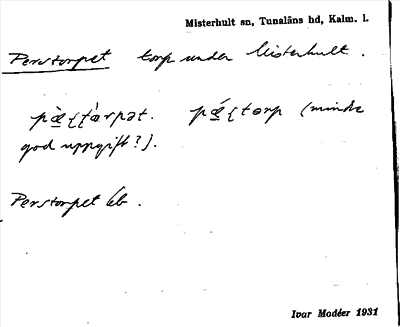 Misterhult sn, Tunaläns hd, Kalm. l.
Perstorpet torp under Misterhult.
(mindre
god uppgift?).
Perstorpet kb.
Ivar Modéer 1931